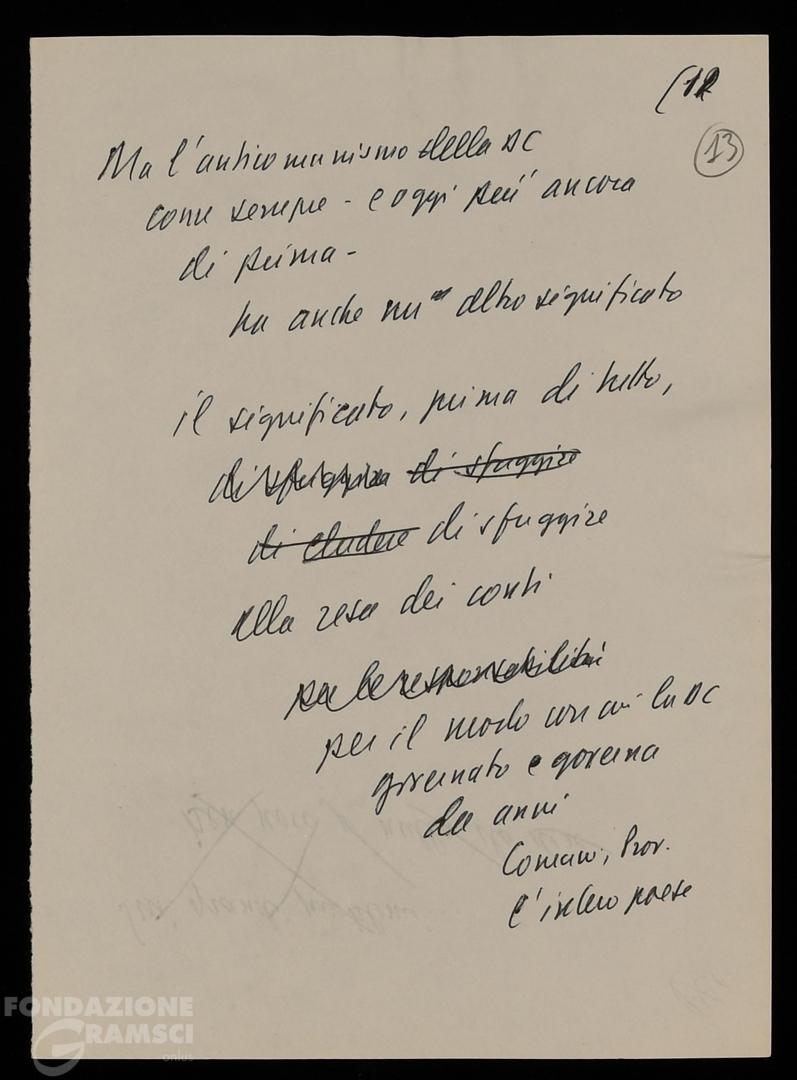 (12
13
Ma l'anticomunismo della DC
come sempre - e oggi più ancora
di prima -
ha anche un altro significato
il significato, prima di tutto,
di sfuggire di sfuggire
di eludere di sfuggire
alla resa dei conti
per le responsabilità
per il modo con cui la DC
governato e governa
da anni
Comuni, Prov.
l'intero paese
FONDAZIONE
GRAMSCI
onlus